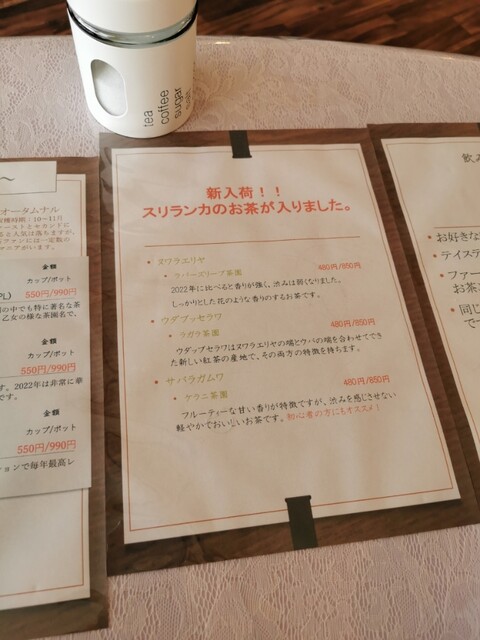 tea
coffee
sugar
新入荷！！
スリランカのお茶が入りました。
• ヌワラエリヤ
• ラバーズリープ茶園 480円/850円
2022年に比べると香りが強く、渋みは弱くなりました。
しっかりとした花のような香りのするお茶です。
• ウダプッセラワ
• ラガラ茶園 480円/850円
ウダプッセラワはヌワラエリヤの端とウバの端を合わせてできた
新しい紅茶の産地で、その両方の特徴を持ちます。
• サバラガムワ
• ケウニ茶園 480円/850円
フルーティーな甘い香りが特徴ですが、渋みを感じさせない
軽やかでおいしいお茶です。初心者の方にもオススメ！
～
オータムナル
収穫時期：10～11月
ファーストとセカンドに
ると人気は落ちますが、
ヴァンには一定数の
マニアがいます。
金額
カップ/ポット
PL) 550円/990円
の中でも特に著名な茶
乙女の様な茶園名で、
金額
カップ/ポット
550円/990円
す。2022年は非常に華
金額
カップ/ポット
550円/990円
ションで毎年最高レ
飲み
• お好きな
• テイステ
• ファー
お茶
• 同じ
で一